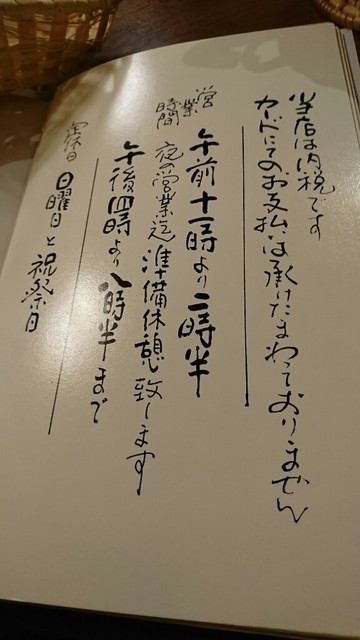 当店は内税です
カードにてのお支払は承けたまわっておりません
営業時間
午前十一時より二時半
夜の営業迄準備休憩致します
午後四時より八時半まで
定休日
日曜日と祝祭日